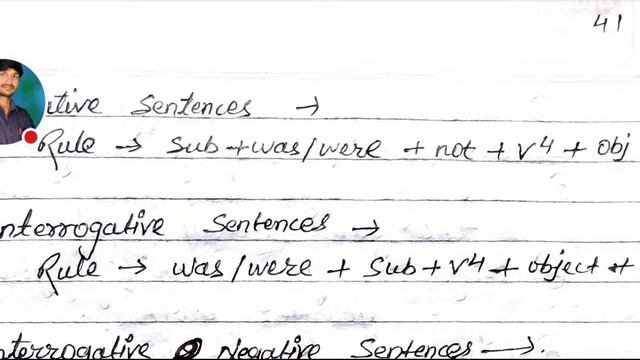 41
ative Sentences →
Rule → Sub + was/were + not + V4 + Obj
nterrogative Sentences →
Rule → was/were + Sub + V4 + object +
nterrogative Negative Sentences →